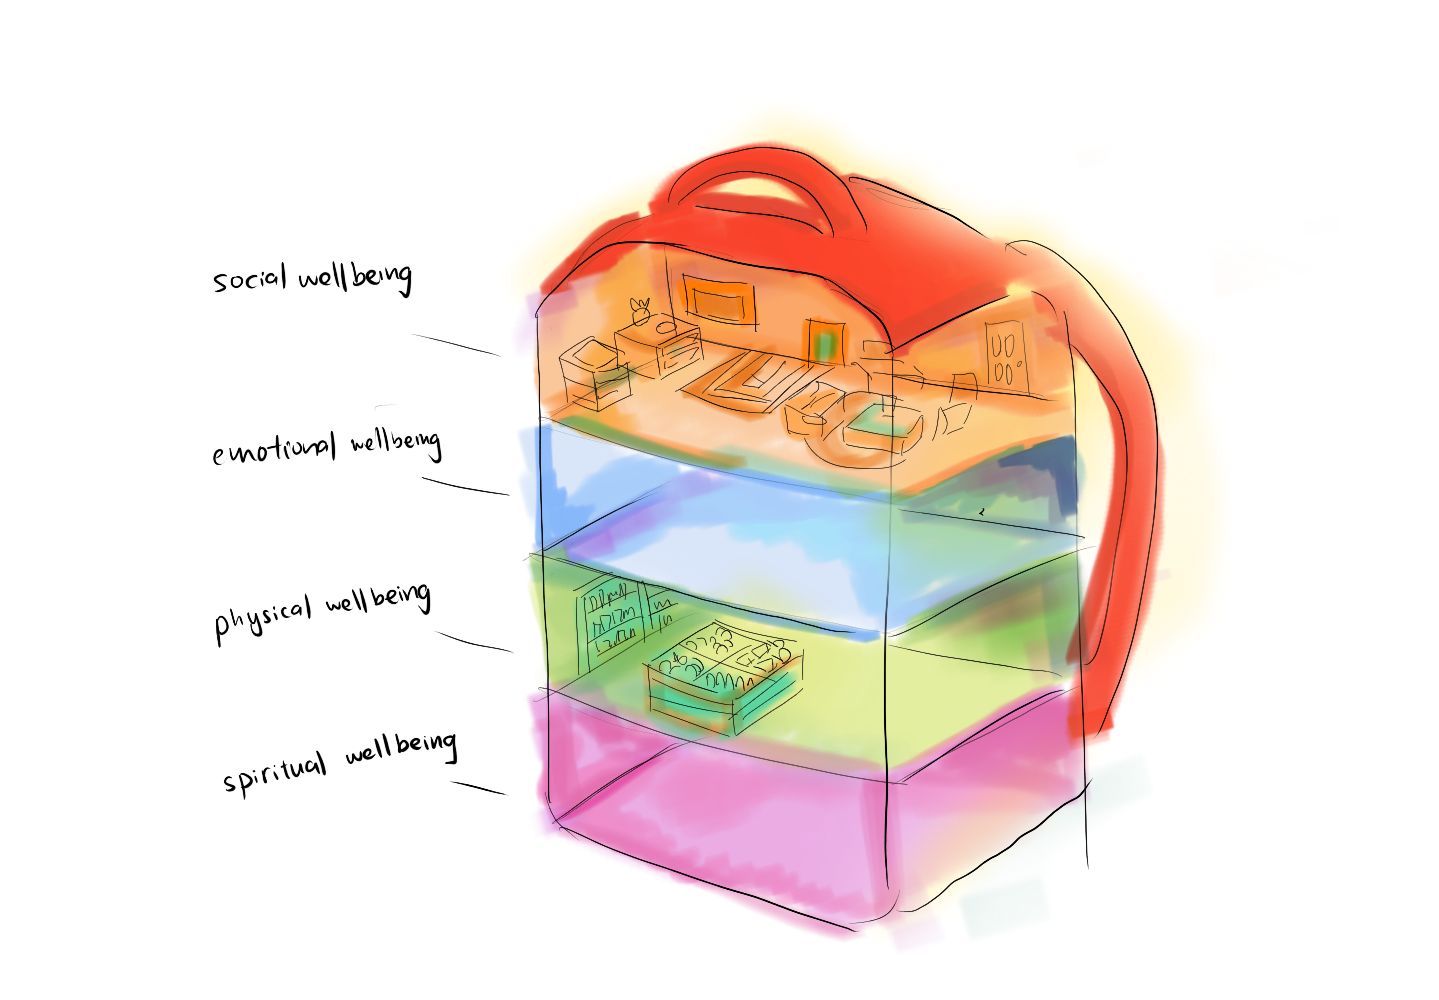 social wellbeing
emotional wellbeing
physical wellbeing
spiritual wellbeing